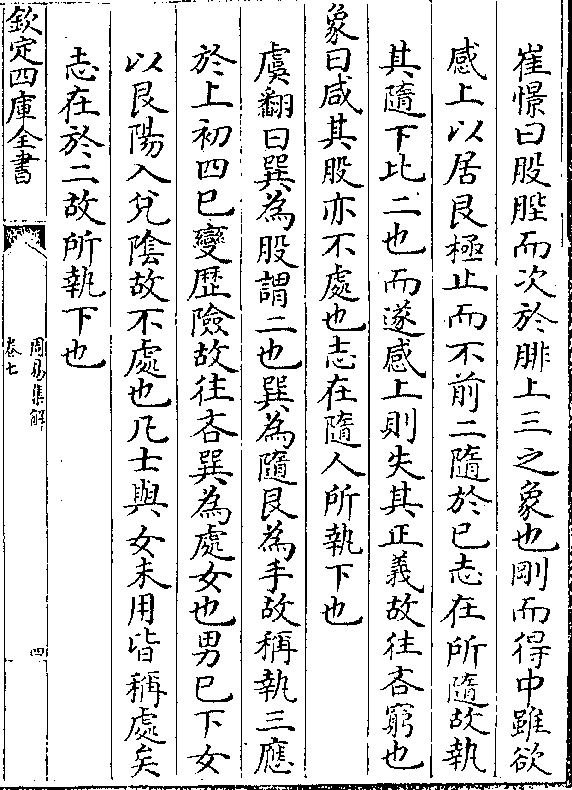 崔憬曰股䏶而次於腓上三之象也剛而得中雖欲
感上以居艮極止而不前二隨於已志在所隨故執
其隨下比二也而遂感上則失其正義故往吝窮也
象曰咸其股亦不處也志在隨人所執下也
虞翻曰巽為股謂二也巽為隨艮為手故稱執三應
於上初四巳變歴險故往吝巽為處女也男巳下女
以艮陽入兌隂故不處也凡士與女未用皆稱處矣
志在於二故所執下也
欽定四庫全書
周易集解
卷七
四